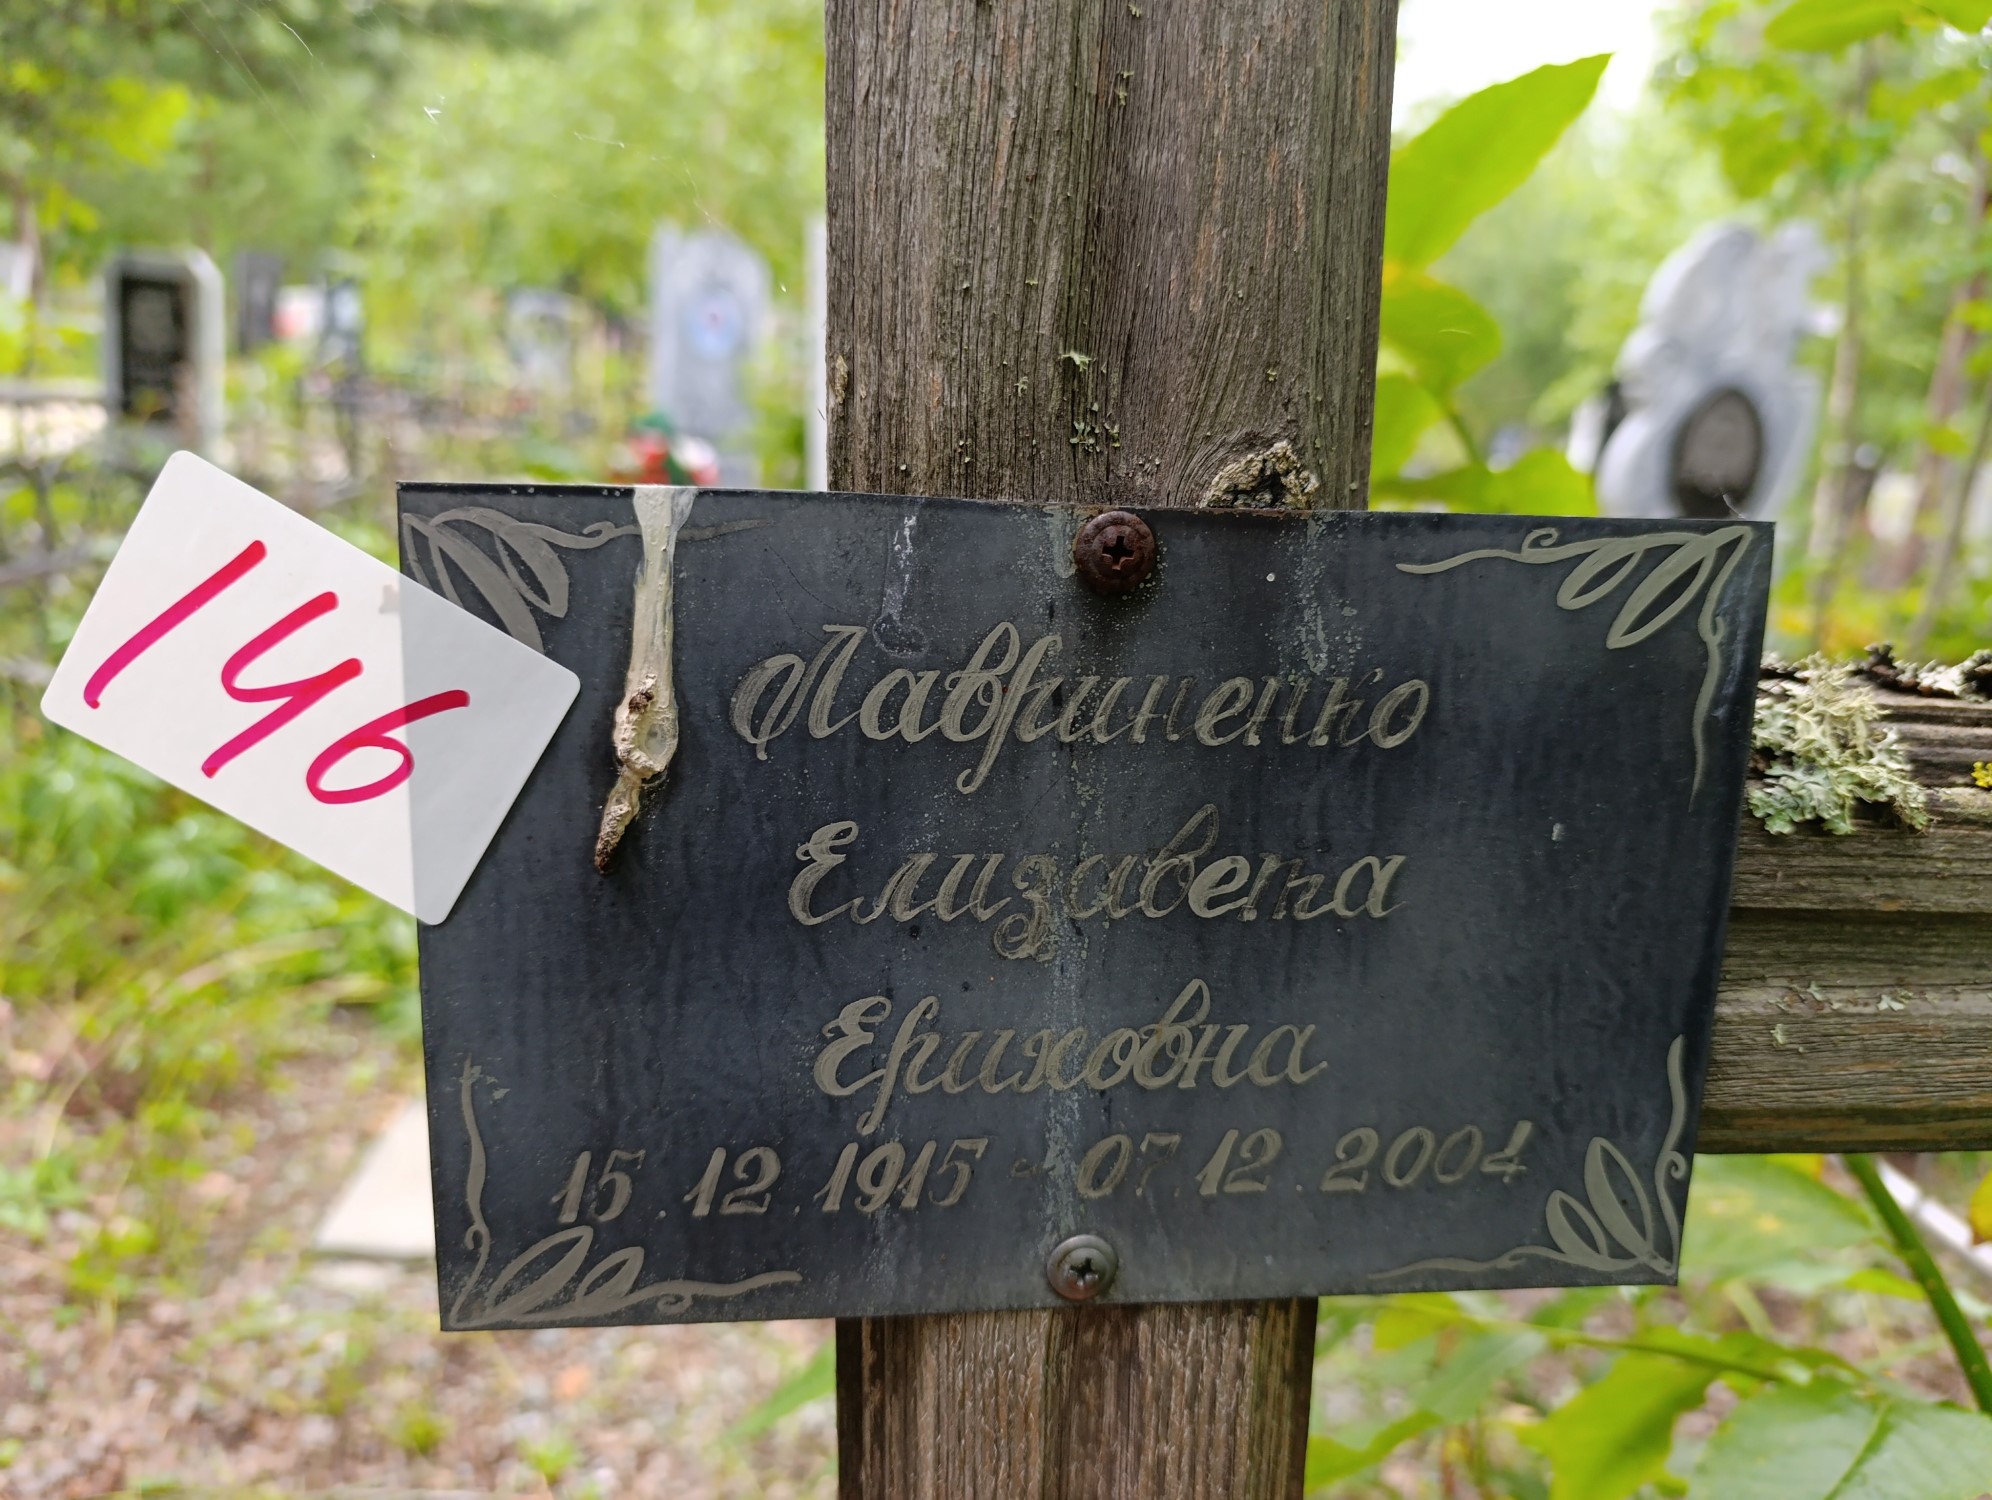 146
Лавриненко
Елизавета
Ериховна
15.12.1915 - 07.12.2004